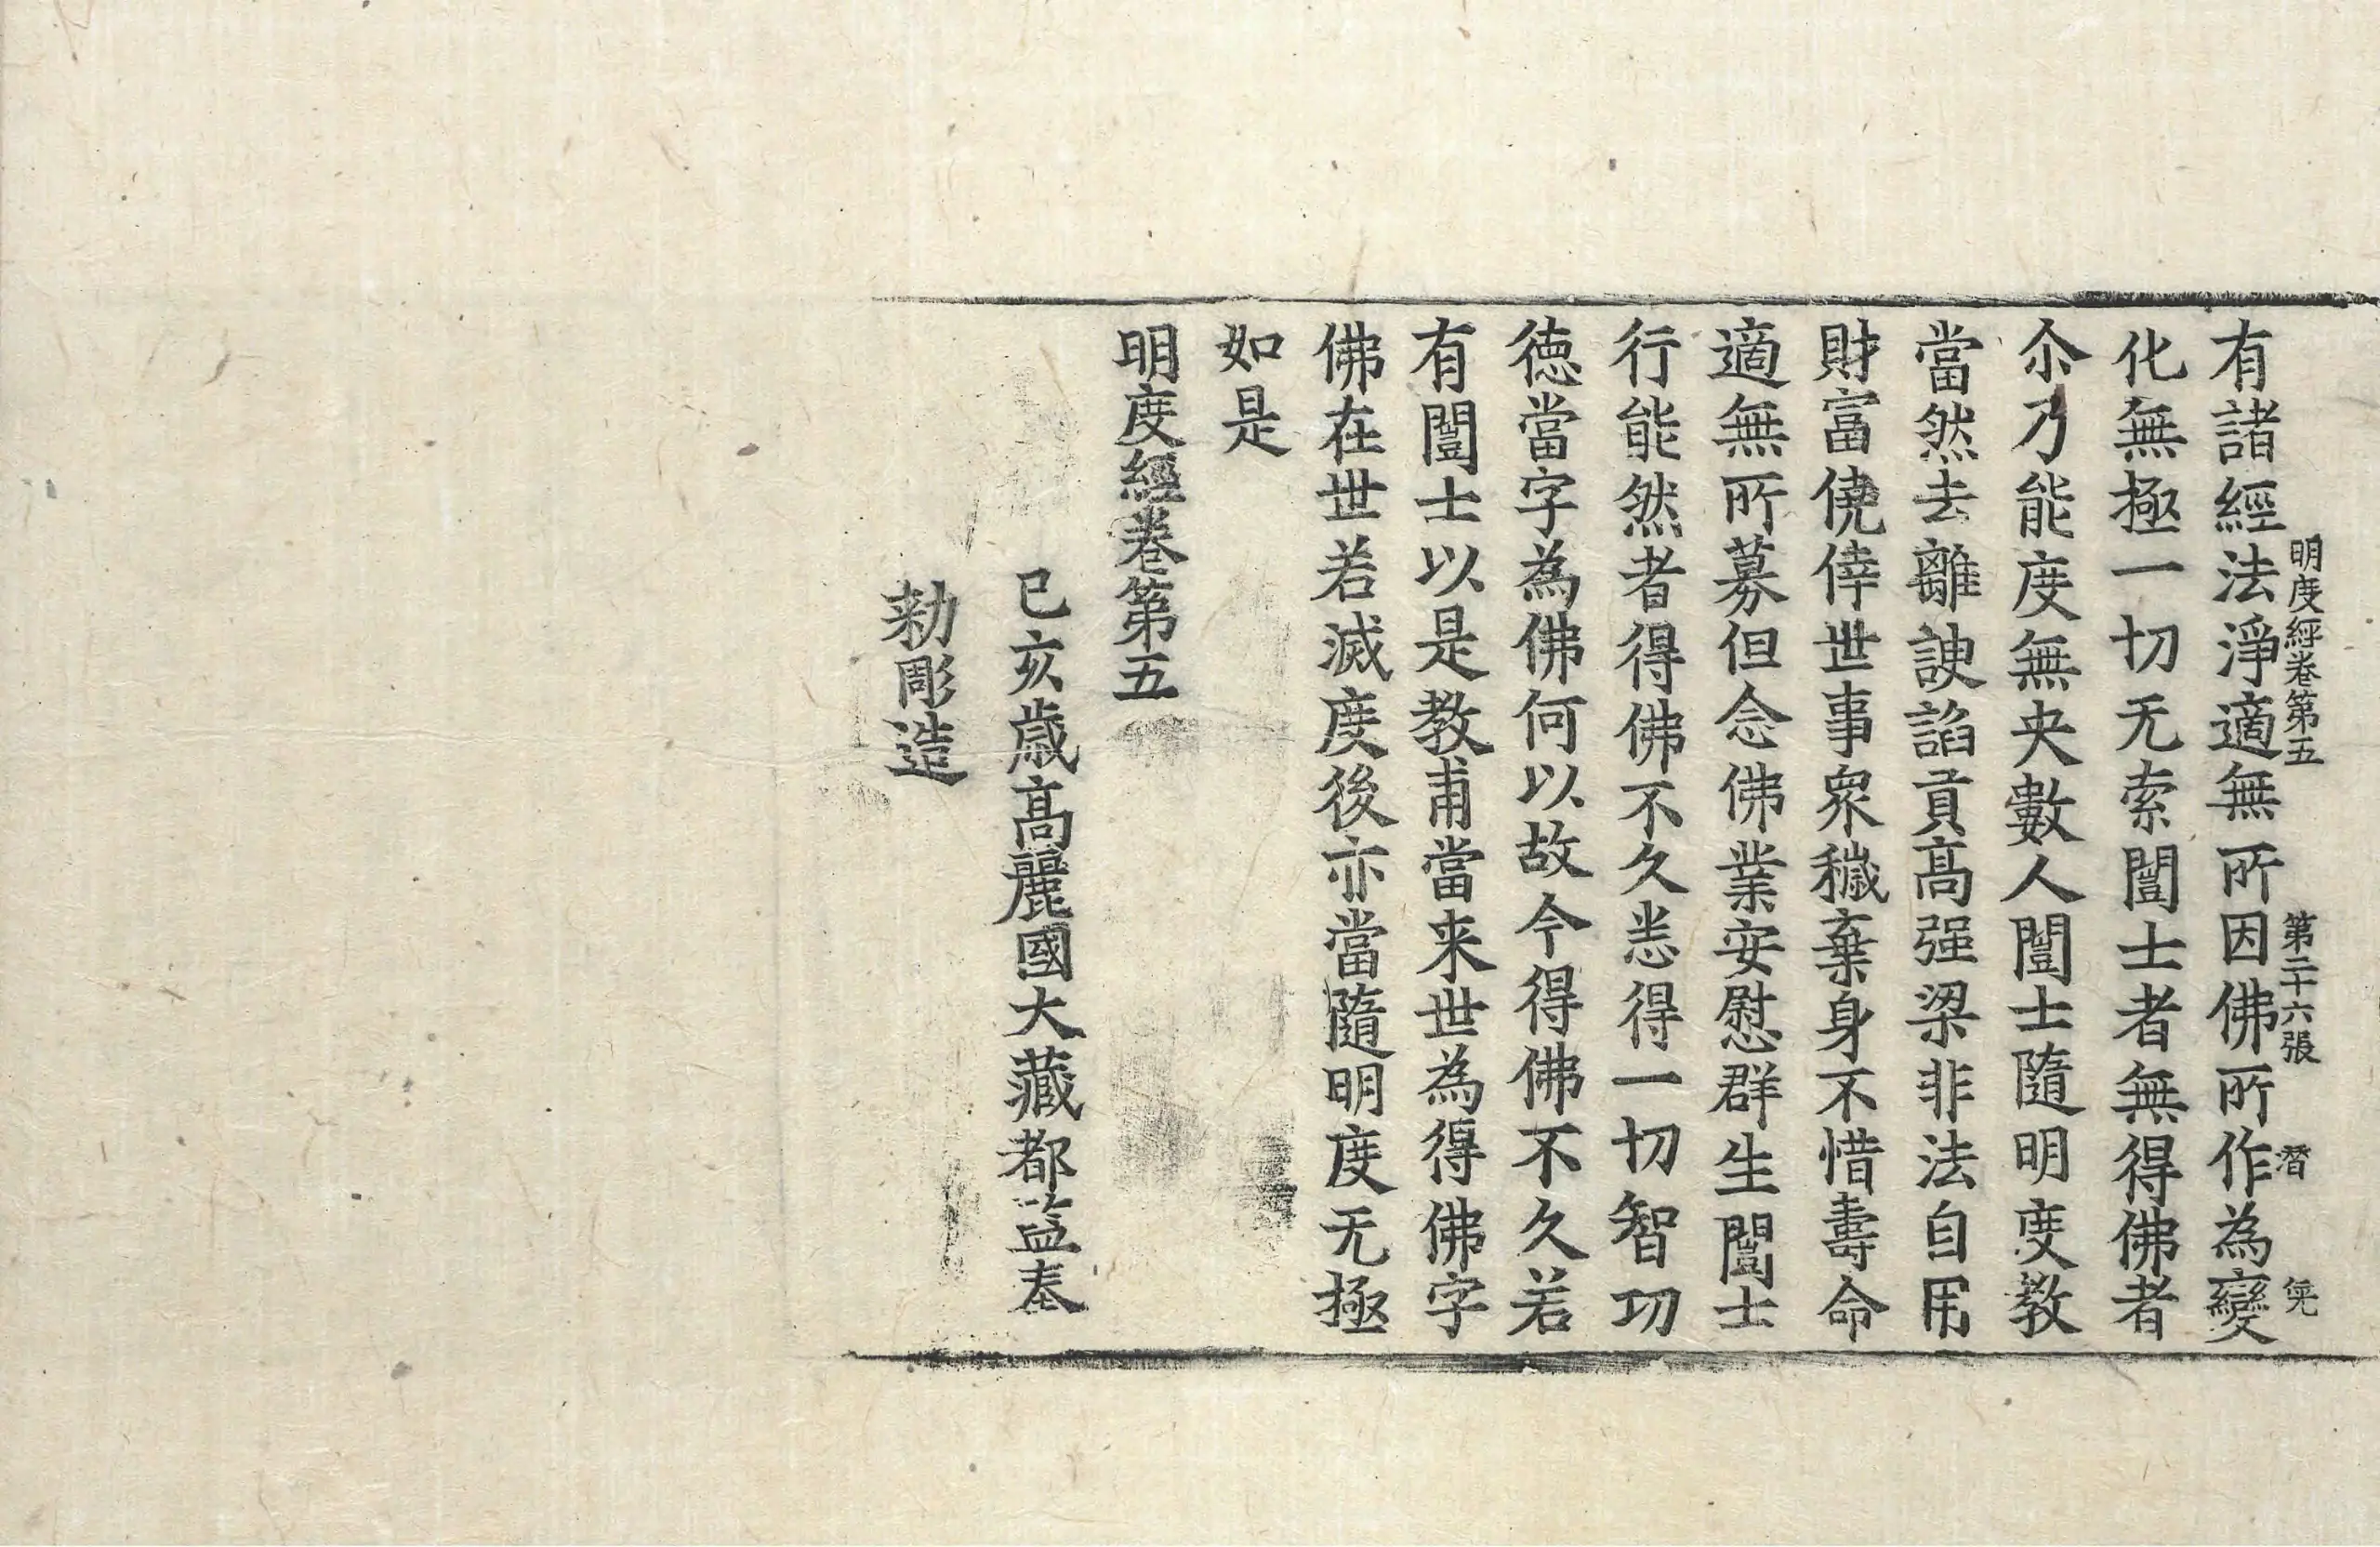 明度經卷第五 第二十六張 潛
有諸經法淨適無所因佛所作為變
化無極一切无索闓士者無得佛者
尒乃能度無央數人闓士隨明度教
當然去離諛諂貢高强梁非法自用
財富僥倖世事衆穢棄身不惜壽命
適無所募但念佛業安慰群生闓士
行能然者得佛不久悉得一切智功
徳當字為佛何以故今得佛不久若
有闓士以是教甫當来世為得佛字
佛在世若滅度後亦當隨明度无極
如是
明度經卷第五
己亥歳高麗國大藏都監奉
勑彫造